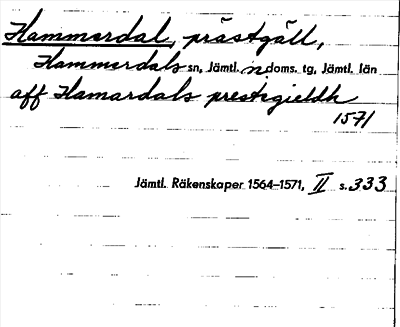 Hammerdal, prästgäll,
Hammerdals sn, Jämtl. n. doms. tg, Jämtl. län
aff Hamardals prestegieldh
1571
Jämtl. Räkenskaper 1564–1571, II s. 333